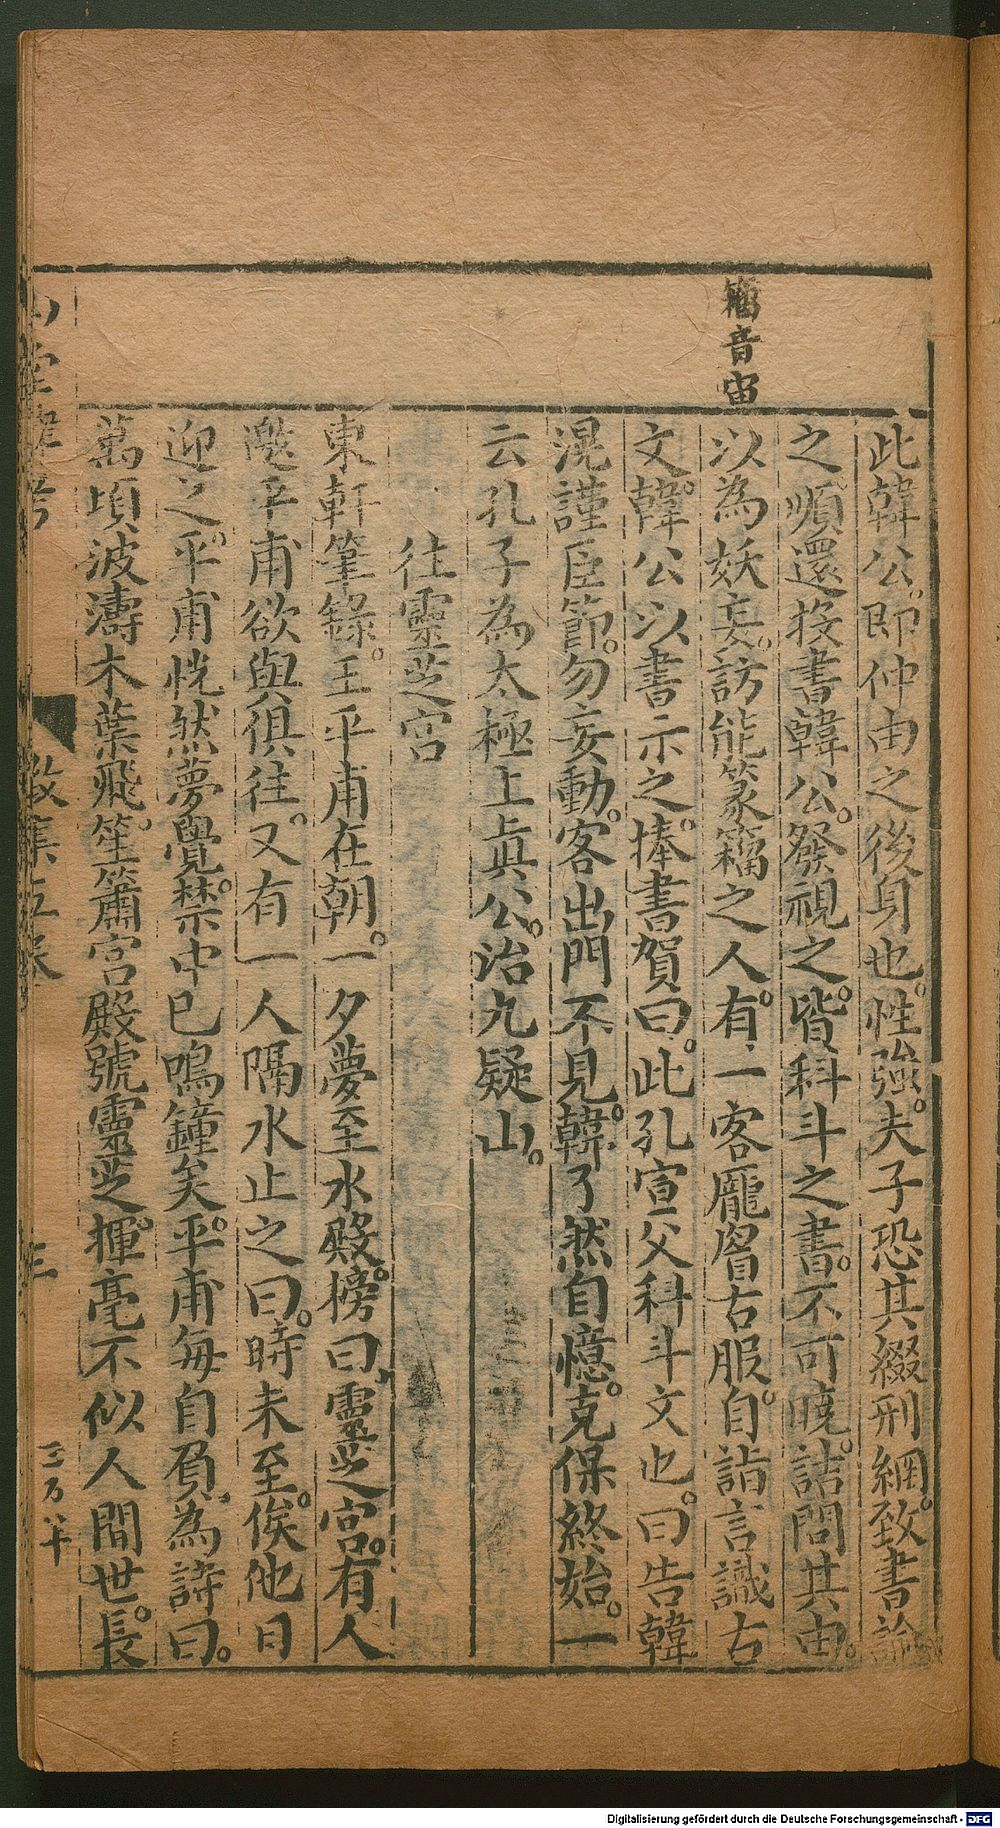 籀音宙
此韓公。即仲由之後身也。性強。夫子恐其綴刑網。致書諭
之。順還投書韓公。發視之。皆科斗之書。不可曉。詰問其由。
以為妖妄。訪能篆籀之人。有一客厖眉古服。自詣言識古
文。韓公以書示之。捧書賀曰。此孔宣父科斗文也。曰告韓
滉謹臣節。勿妄動。客出門不見。韓了然自憶。克保終始。一
云孔子為太極上眞公。治九疑山。
往靈芝宮
東軒筆錄。王平甫在朝。一夕夢至水殿。榜曰靈芝宮。有人
邀平甫欲與俱往。又有一人隔水止之曰。時未至。俟他日
迎之。平甫恍然夢覺。禁中已鳴鐘矣。平甫每自負。為詩曰。
萬頃波濤木葉飛。笙簫宮殿號靈芝。揮毫不似人間世。長
山堂肆考
徵集五卷
三
三百八十
Digitalisierung gefördert durch die Deutsche Forschungsgemeinschaft - DFG